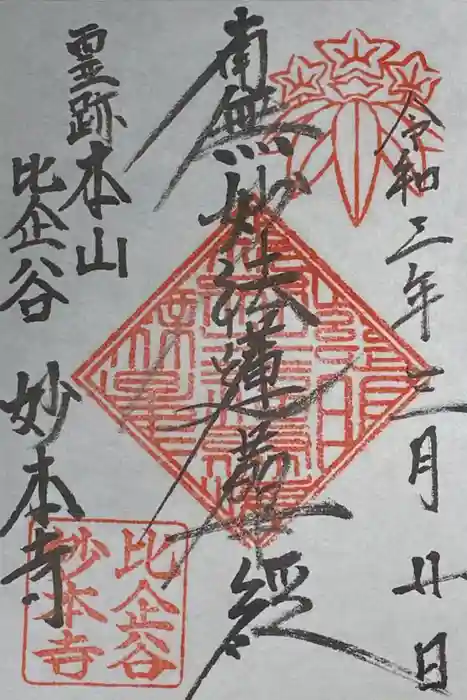 令和三年二月廿日
南無妙法蓮華経
霊跡本山
比企谷 妙本寺
比企谷
妙本寺